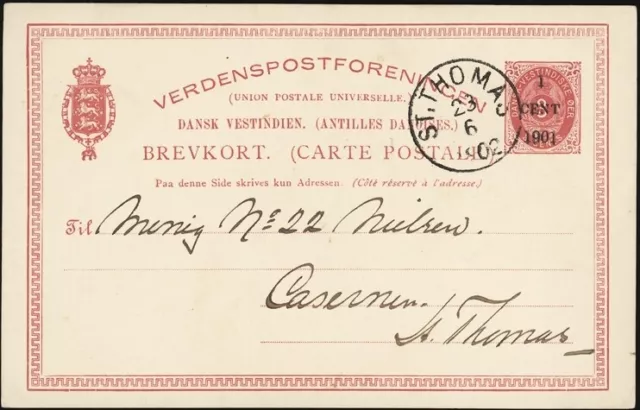 VERDENSPOSTFORENINGEN
(UNION POSTALE UNIVERSELLE.)
DANSK VESTINDIEN. (ANTILLES DANOISES.)
BREVKORT. (CARTE POSTALE)
Paa denne Side skrives kun Adressen. (Côté réservé à l'adresse.)
ST. THOMAS
23
6
1902
1
CENT
1901
Til Menig No 22 Nielsen.
Casernen.
St. Thomas